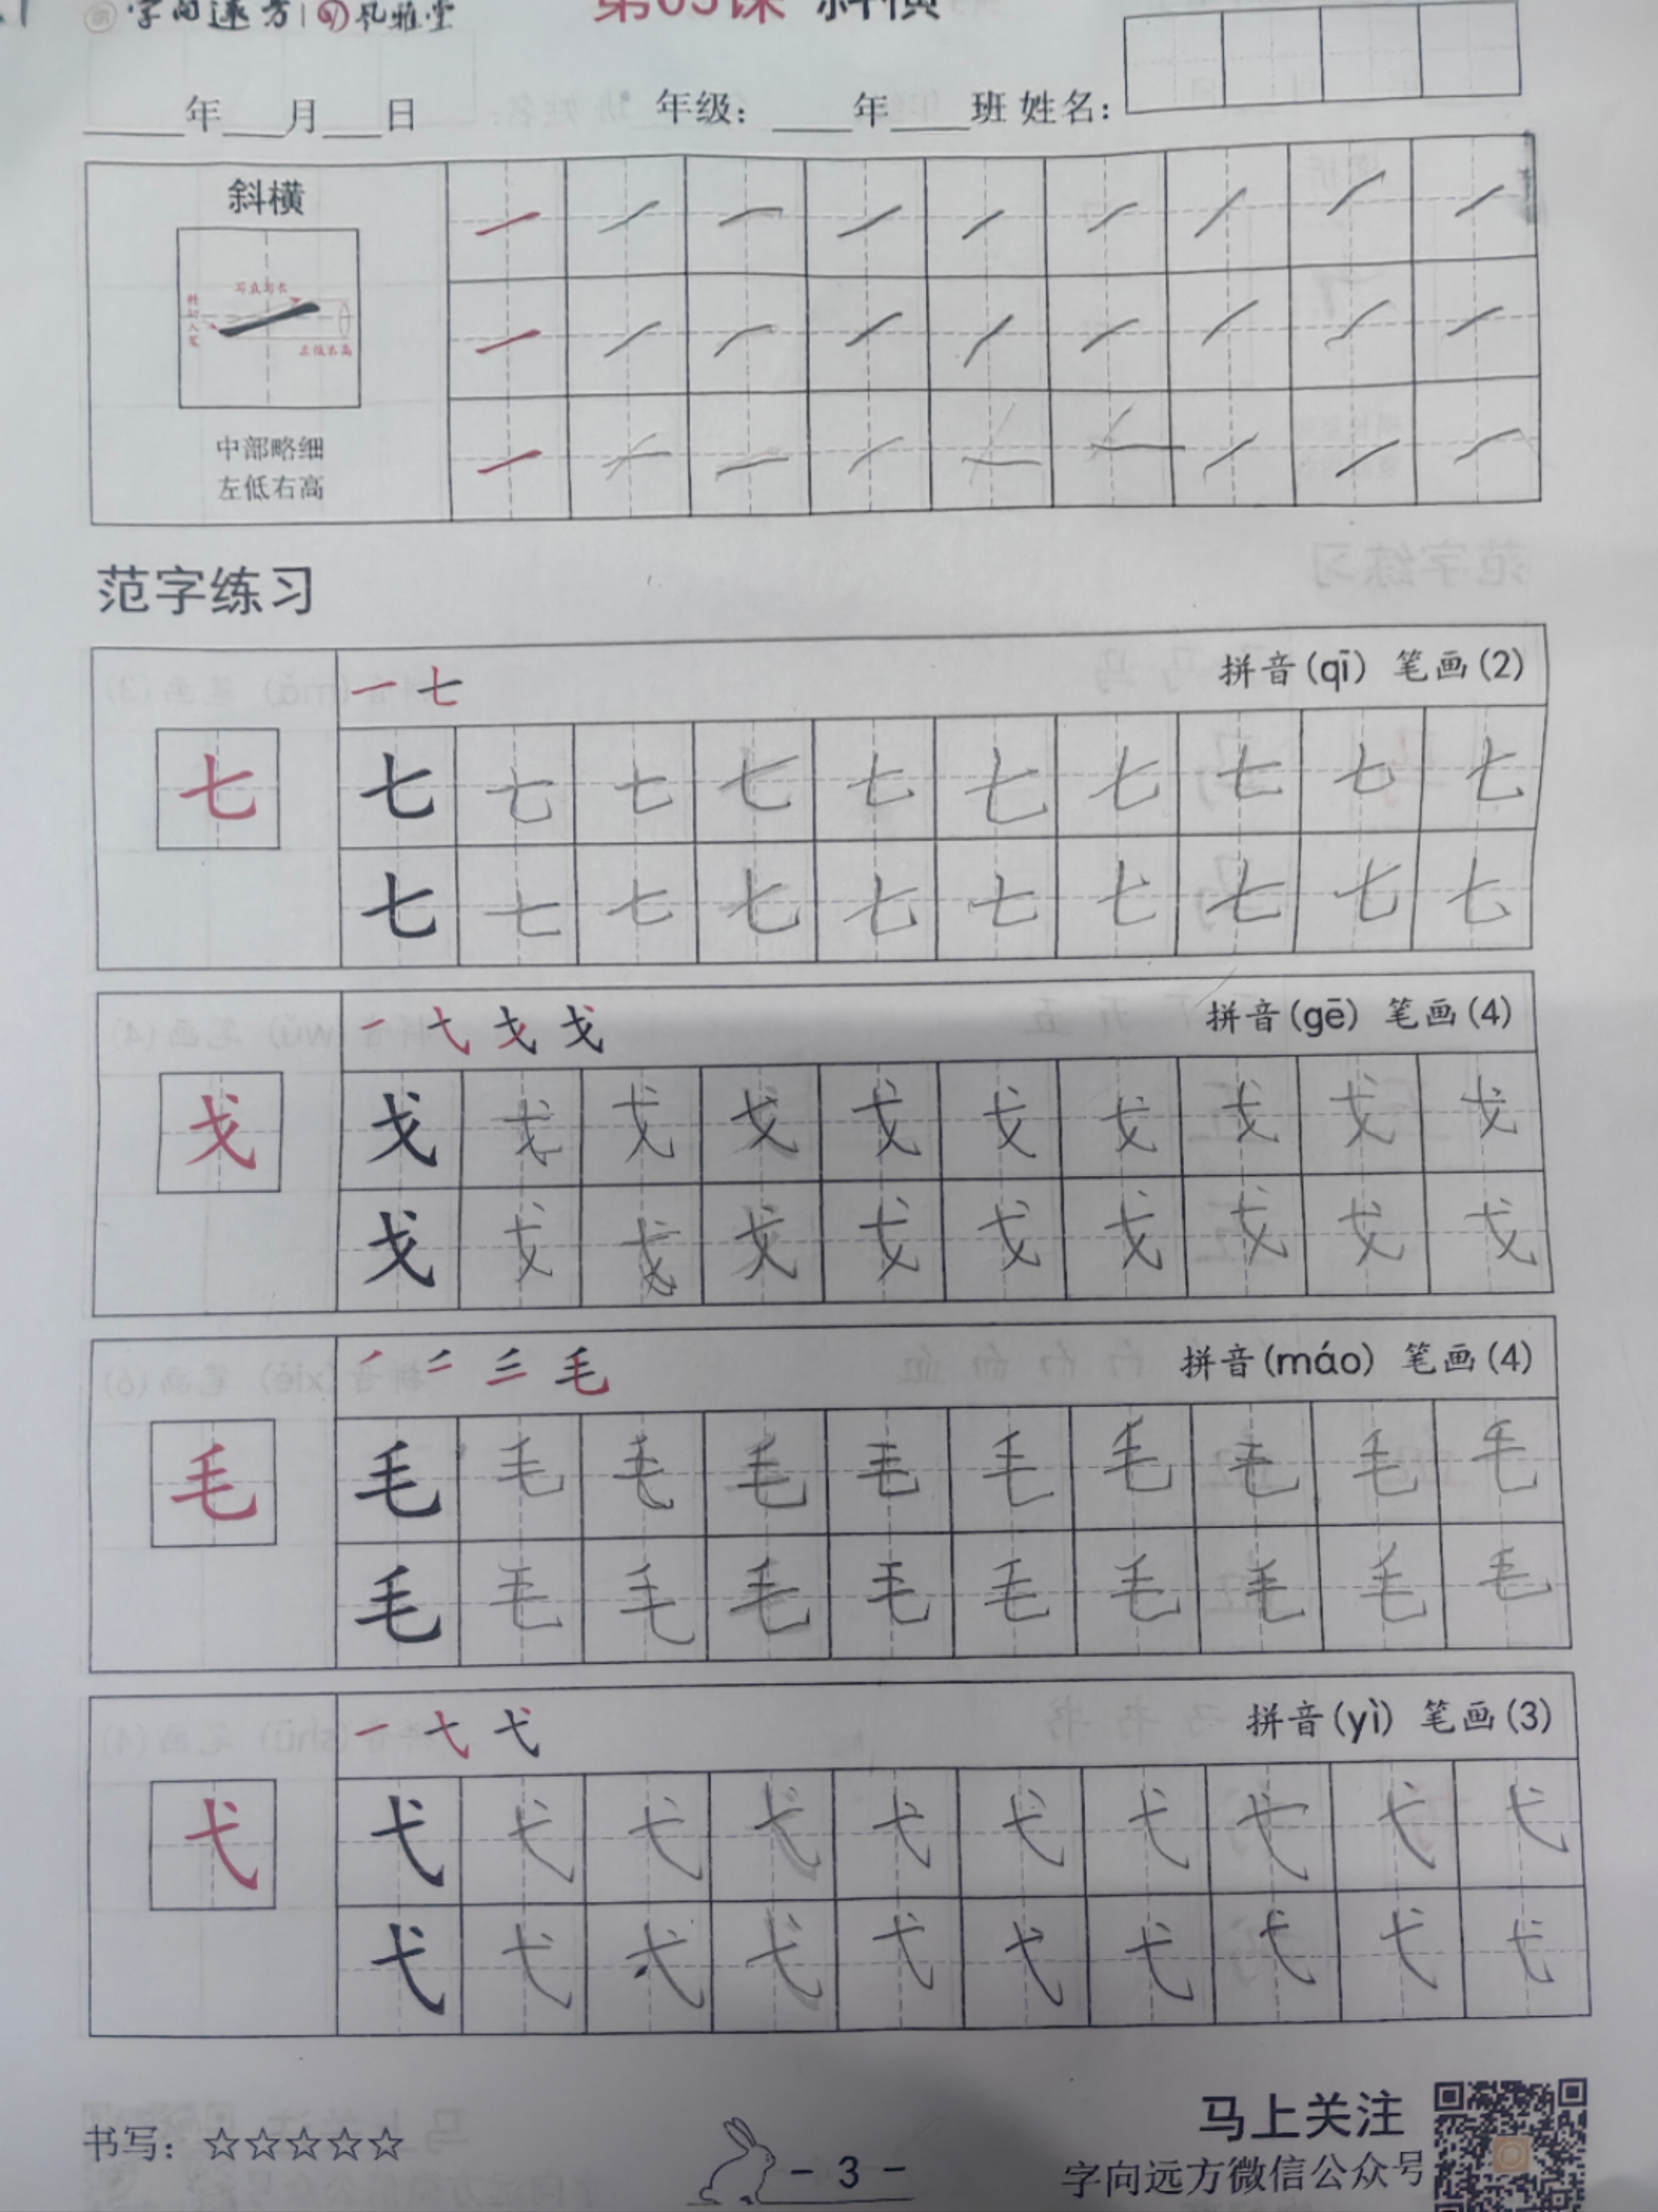 字向远方 | 风雅堂 第03课 斜横
____年___月___日 年级：____年____班 姓名：
斜横
左低右高
中部略细
左低右高
范字练习
一 七 拼音(qī) 笔画(2)
七 七 七 七 七 七 七 七 七 七 七
七 七 七 七 七 七 七 七 七 七
拼音(gē) 笔画(4)
戈 戈 戈 戈 戈 戈 戈 戈 戈 戈 戈
戈 戈 戈 戈 戈 戈 戈 戈 戈 戈
毛 拼音(máo) 笔画(4)
毛 毛 毛 毛 毛 毛 毛 毛 毛 毛 毛
毛 毛 毛 毛 毛 毛 毛 毛 毛 毛
一 弋 拼音(yì) 笔画(3)
弋 弋 弋 弋 弋 弋 弋 弋 弋 弋 弋
弋 弋 弋 弋 弋 弋 弋 弋 弋 弋
马上关注
书写：☆☆☆☆☆ - 3 - 字向远方微信公众号